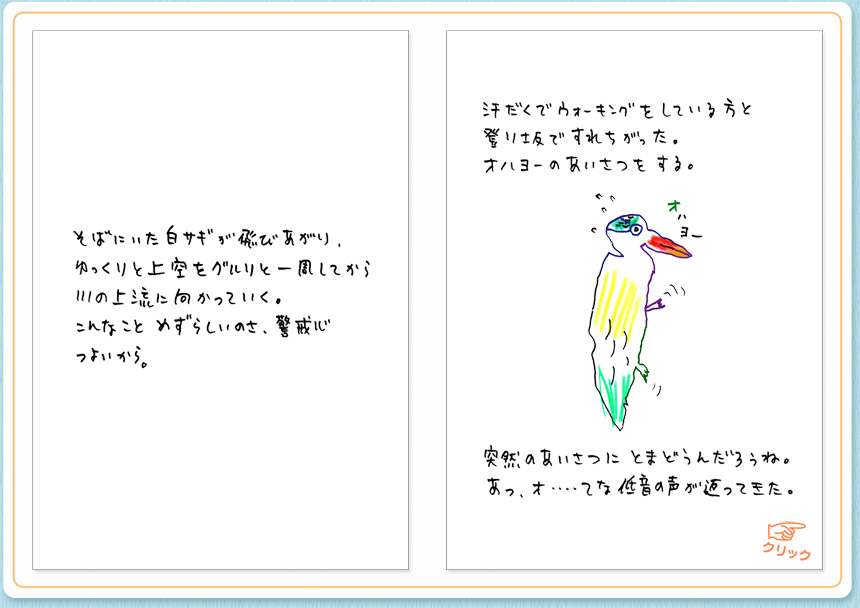 そばにいた白サギが飛びあがり、
ゆっくりと上空をグルリと一周してから
川の上流に向かっていく。
こんなこと めずらしいのさ、警戒心
つよいから。
汗だくでウォーキングをしている方と
登り坂ですれちがった。
オハヨーのあいさつをする。
オハヨー
突然のあいさつに とまどうんだろうね。
あっ、オ‥‥てな低音の声が返ってきた。
クリック